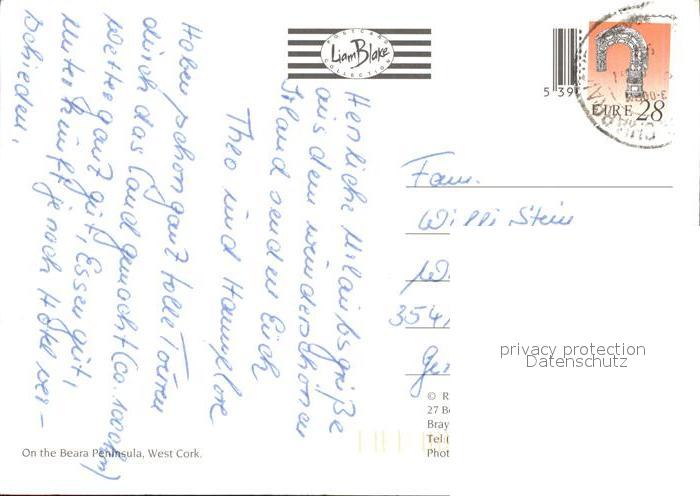 POSTCARD
Liam Blake
COLLECTION
5 39
EIRE 28
Herzliche Urlaubsgrüße
aus dem wunderschönen
Irland senden Euch
Theo und Hannelore
Haben schon ganz tolle Touren
durch das Land gemacht (ca. 1000 km)
Wetter ganz gut, Essen gut,
Unterkünfte je nach Hotel ver-
schieden.
Fam.
Willi Stein
354
privacy protection
Datenschutz
© R
27 B
Bray
Tel:
Phot
On the Beara Peninsula, West Cork.